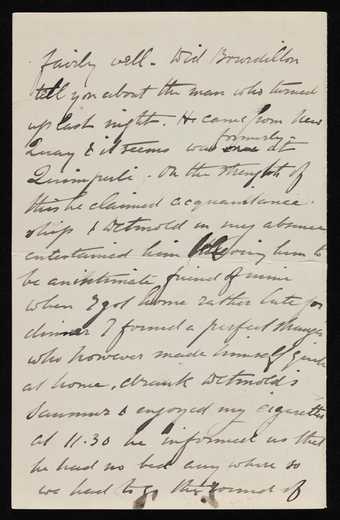 fairly well - Did Bourdillon
tell you about the man who turned
up last night. He came from New
Quay & it seems was formerly at
Quimperlé. On the strength of
this he claimed acquaintance-
ship & Detmold in my absence
entertained him believing him to
be an intimate friend of mine
when I got home rather late for
dinner I found a perfect stranger
who however made himself quite
at home, drank Detmold's
Saumur & enjoyed my cigarettes
at 11.30 he informed us that
he had no bed any where so
we had to go the round of